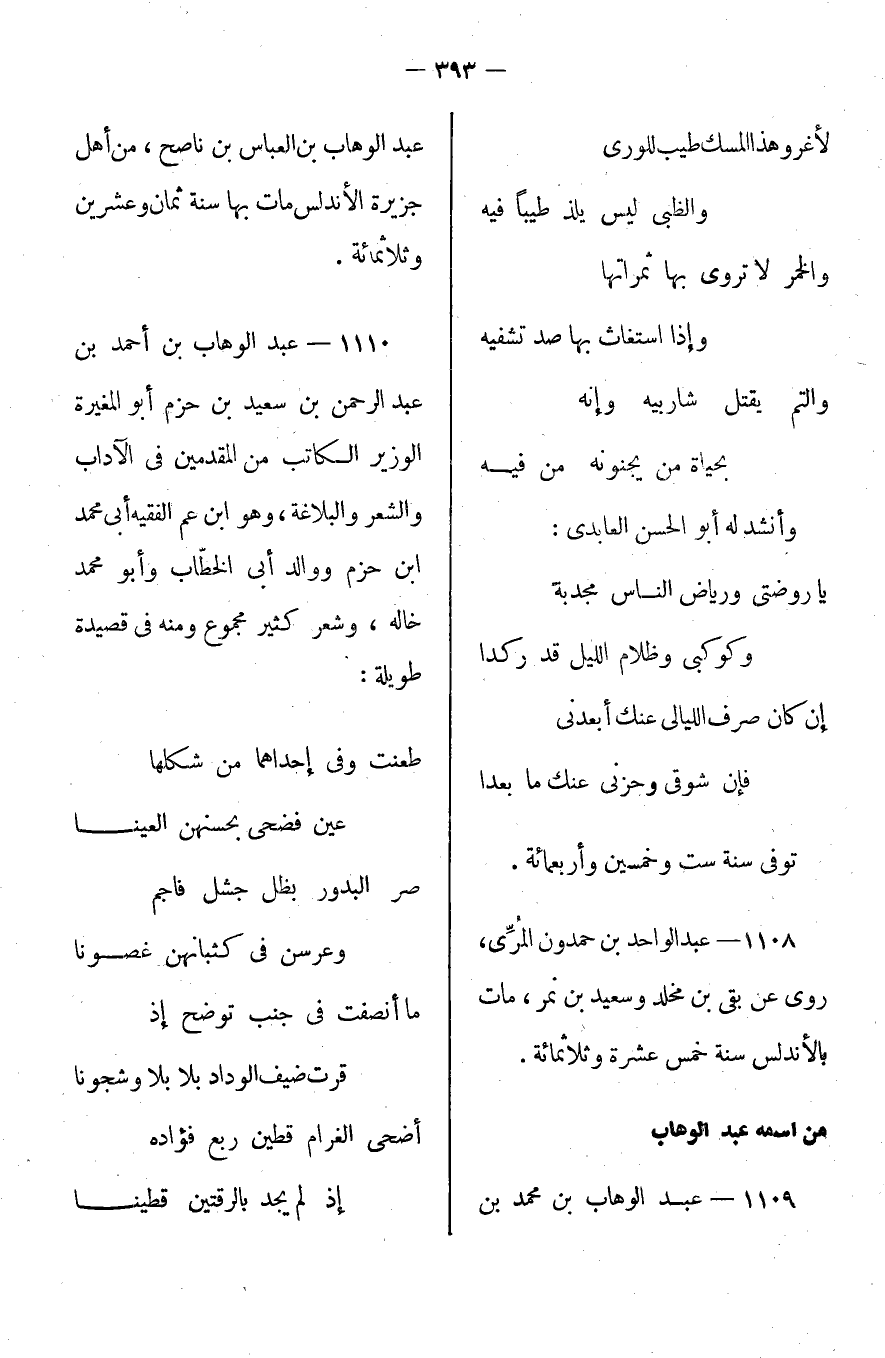 — ٣٩٣ —
لأغرو هذا المسك طيب للورى
والظبى ليس يلذ طيباً فيه
والخمر لا تروى بها ثمراتها
وإذا استغاث بها صد تشفيه
والتم يقتل شاربيه وإنه
بحياة من يجنونه من فيــه
وأنشد له أبو الحسن العابدى :
يا روضتى ورياض النــاس مجدبة
وكوكبى وظلام الليل قد ركدا
إن كان صرف الليالى عنك أبعدنى
فإن شوقى وحزنى عنك ما بعدا
توفى سنة ست وخمسين وأربعمائة .
١١٠٨ — عبد الواحد بن حمدون المُرِّى،
روى عن بقى بن مخلد وسعيد بن نمر ، مات
بالأندلس سنة خمس عشرة وثلاثمائة .
من اسمه عبد الوهاب
١١٠٩ — عبــد الوهاب بن محمد بن
عبد الوهاب بن العباس بن ناصح ، من أهل
جزيرة الأندلس مات بها سنة ثمان وعشرين
وثلاثمائة .
١١١٠ — عبد الوهاب بن أحمد بن
عبد الرحمن بن سعيد بن حزم أبو المغيرة
الوزير الــكاتب من المقدمين فى الآداب
والشعر والبلاغة ، وهو ابن عم الفقيه أبى محمد
ابن حزم ووالد أبى الخطّاب وأبو محمد
خاله ، وشعر كثير مجموع ومنه فى قصيدة
طويلة :
طعنت وفى إحداهما من شكلها
عين فضحى بحسنهن العينــــا
صر البدور بظل جشل فاجم
وعرسن فى كثبانهن غصــونا
ما أنصفت فى جنب توضح إذ
قرت ضيف الوداد بلا بلا وشجونا
أضحى الغرام قطين ربع فؤاده
إذ لم يجد بالرقتين قطينــــا